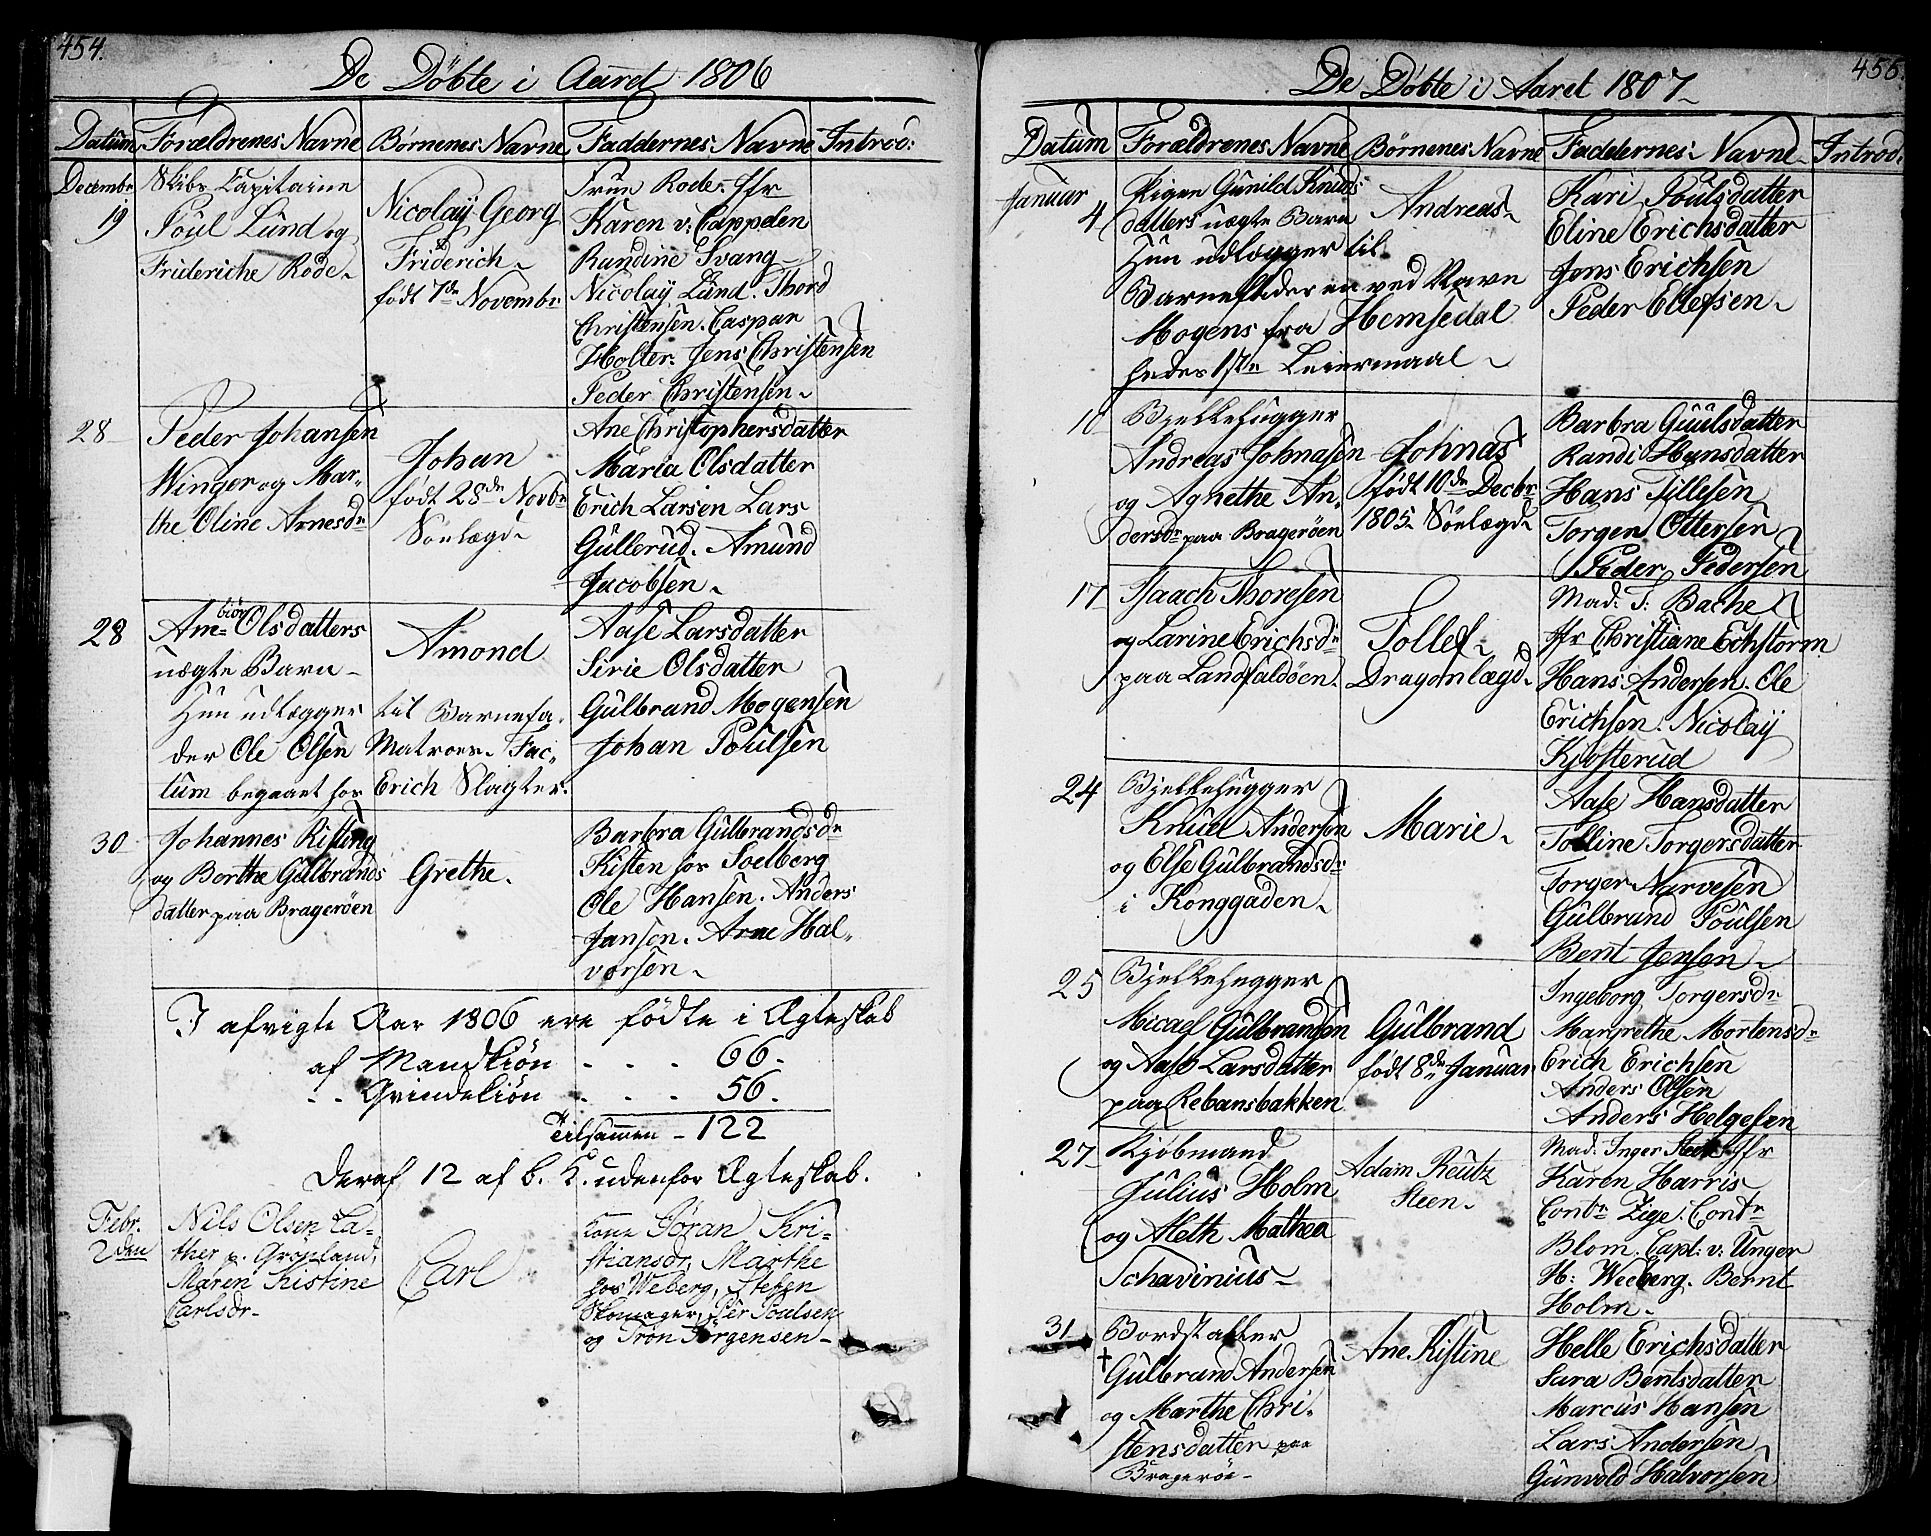 454.
De Döbte i Aaret 1806
Datum Forældrenes Navne Børnenes Navne Faddernes Navne Introd:
Decembr. 19
Skibs Capitaine
Poul Lund og
Frideriche Rode
Nicolaÿ Georg
Friderich
født 7de Novembr
Trine Rode. Jfr
Karen v. Cappelen
Randine Svang
Nicolaÿ Lund. Thord
Christensen. Caspar
Holter. Jens Christensen
Peder Christensen
28
Peder Johansen
Winger og Mar-
the Oline Arnesdr
Johan
født 28de Novbr
Söelægd
Ane Christophersdatter
Maria Olsdatter
Erich Larsen Lars
Gullerud. Amund
Jacobsen
28
Ambiør Olsdatters
uægte Barn
Hun udlægger til Barnefa-
der Ole Olsen Matroes. Fac-
tum begaaet hos Erich Slagter.
Amond
Aase Larsdatter
Sirie Olsdatter
Gulbrand Mogensen
Johan Poulsen
30
Johannes Kisting
og Berthe Gulbrands
datter paa Bragerøen
Grethe.
Barbra Gulbrandsdr
Kisten hos Soelberg
Ole Hansen. Anders
Jansen. Arne Hal-
vorsen
I afvigte Aar 1806 ere fødte i Ægteskab
af Mandkiøn . . . 66.
. . Qvindekiøn . . . 56.
Tilsammen - 122
Deraf 12 af b. K. udenfor Ægteskab.
Febr.
2den
Nils Olsen La-
ther p. Grønland,
Maren Kistine
Carlsdr
Carl
Kone Jøran Kri-
stiansdr, Marthe
hos Weberg, Stefen
Skomager, Per Poulsen
og Trøn Jørgensen
455.
De Döbte i Aaret 1807
Datum Forældrenes Navne Børnenes Navne Faddernes Navne Introd.
Januar
4
Pigen Gunild Knuds
datters uægte Barn
Hun udlægger til
Barnefader en ved Navn
Mogens fra Hemsedal
hedes 1ste Leiermaal
Andreas
Kari Poulsdatter
Eline Erichsdatter
Jens Erichsen
Peder Ellefsen
10
Bjelkehugger
Andreas Johnasen
og Agnethe An-
dersdr paa Bragerøen
Johnas
født 10de Decbr
1805 Söelægd
Barbra Guulsdatter
Randi Hansdatter
Hans Tillesen
Torgen Ottersen
Peder Pedersen
17
Isaach Thoresen
og Larine Erichsdr
paa Landfaldøen.
Tollef
Dragonlægd
Mad. T. Bache
Jfr Christiane Eckstorm
Hans Andersen. Ole
Erichsen. Nicolaÿ
Kjosterud
24
Bjelkehugger
Knud Andersen
og Else Gulbrandsdr
i Konggaden
Marie
Aase Hansdatter
Tolline Torgersdatter
Torger Narvesen
Gulbrand Poulsen
Bent Jensen
25
Bjelkehugger
Micael Gulbrandsen
og Aase Larsdatter
paa Rebansbakken
Gulbrand
født 8de Januar
Ingeborg Torgersdr
Margrethe Mortensdr
Erich Erichsen
Anders Olsen
Anders Helgesen
27
Kjøbmand
Julius Holm
og Aleth Mathea
Schavinius
Adam Reutz
Steen
Mad. Inger Jfr
Karen Harris
Contr Zige. Contr
Blom. Capt. v. Unger
H: Weeberg. Bernt
Holm
31
Bordstabler
† Gulbrand Andersen
og Marthe Chri-
stensdatter paa
Bragerøe
Ane Kistine
Helle Erichsdatter
Sara Bentsdatter
Marcus Hansen
Lars Andersen
Gunvold Halvorsen